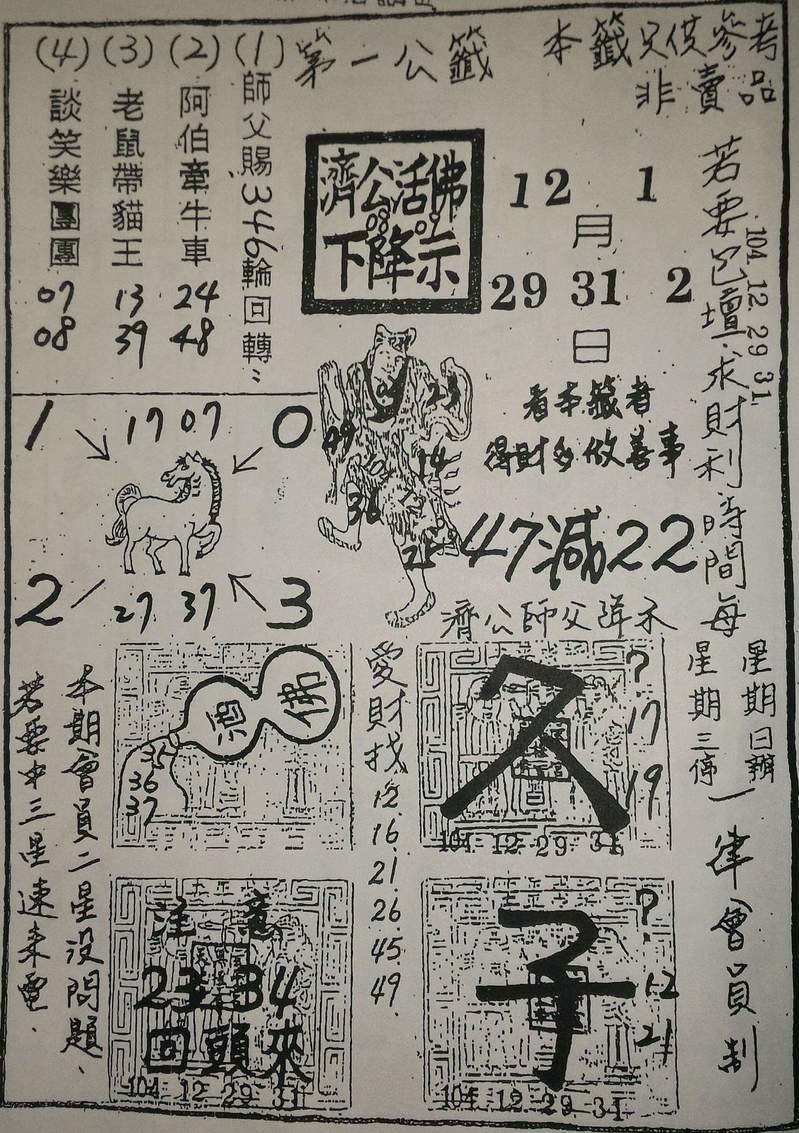 本籤只供參考
非賣品
第一公籤
(1)師父賜346輪回轉
(2)阿伯牽牛車 24 48
(3)老鼠帶貓王 13 39
(4)談笑樂團團 07 08
濟公活佛
08 09
下降示
12 1
月
29 31 2
日
104.12.29 31.
若要包壇求財利時間每
星期日辦
星期三停
一律會員制
看本籤者
得財多做善事
47減22
1 17 07 0
2 27 37 3
09
23
14
36
25
濟公師父降示
佛
35
36
37
愛財找
12
16
21
26
45
49
久
?
17
19
104 12 29 31
注意
23 34
回頭來
104 12 29 31
子
?
12
21
104 12 29 31
本期會員二星沒問題、
若要中三星速來電.